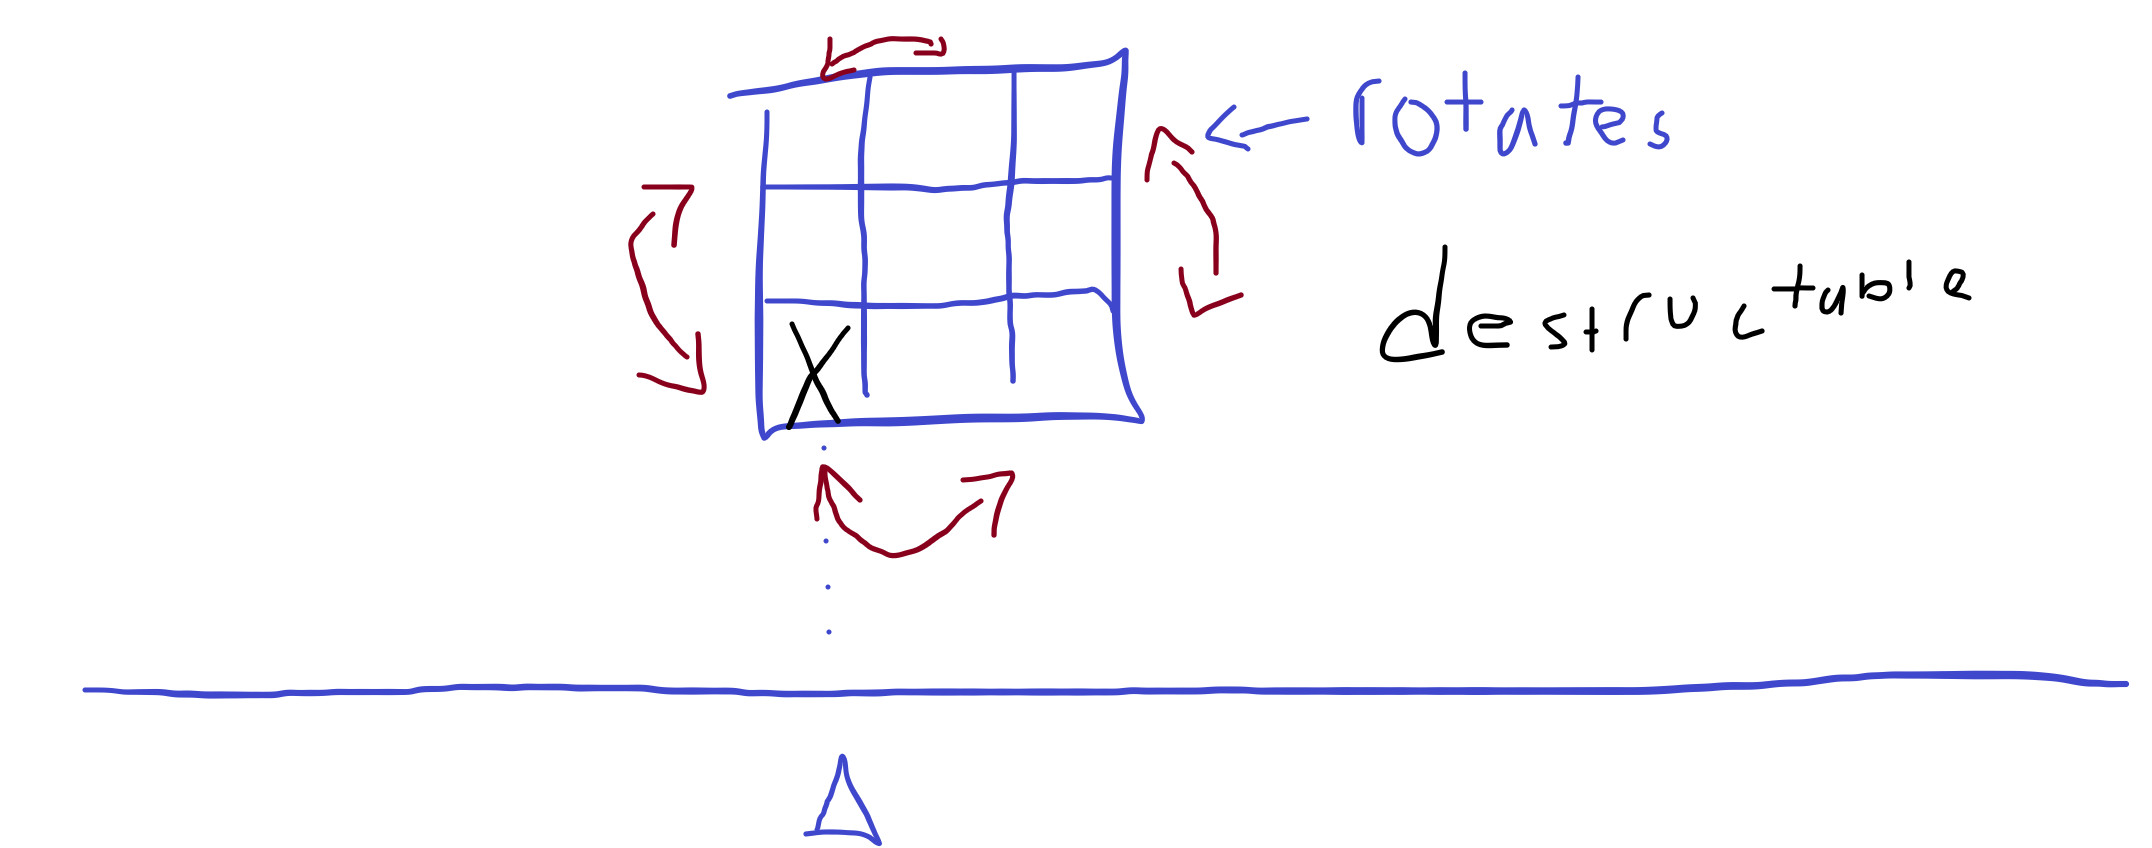 rotates
destructable
X